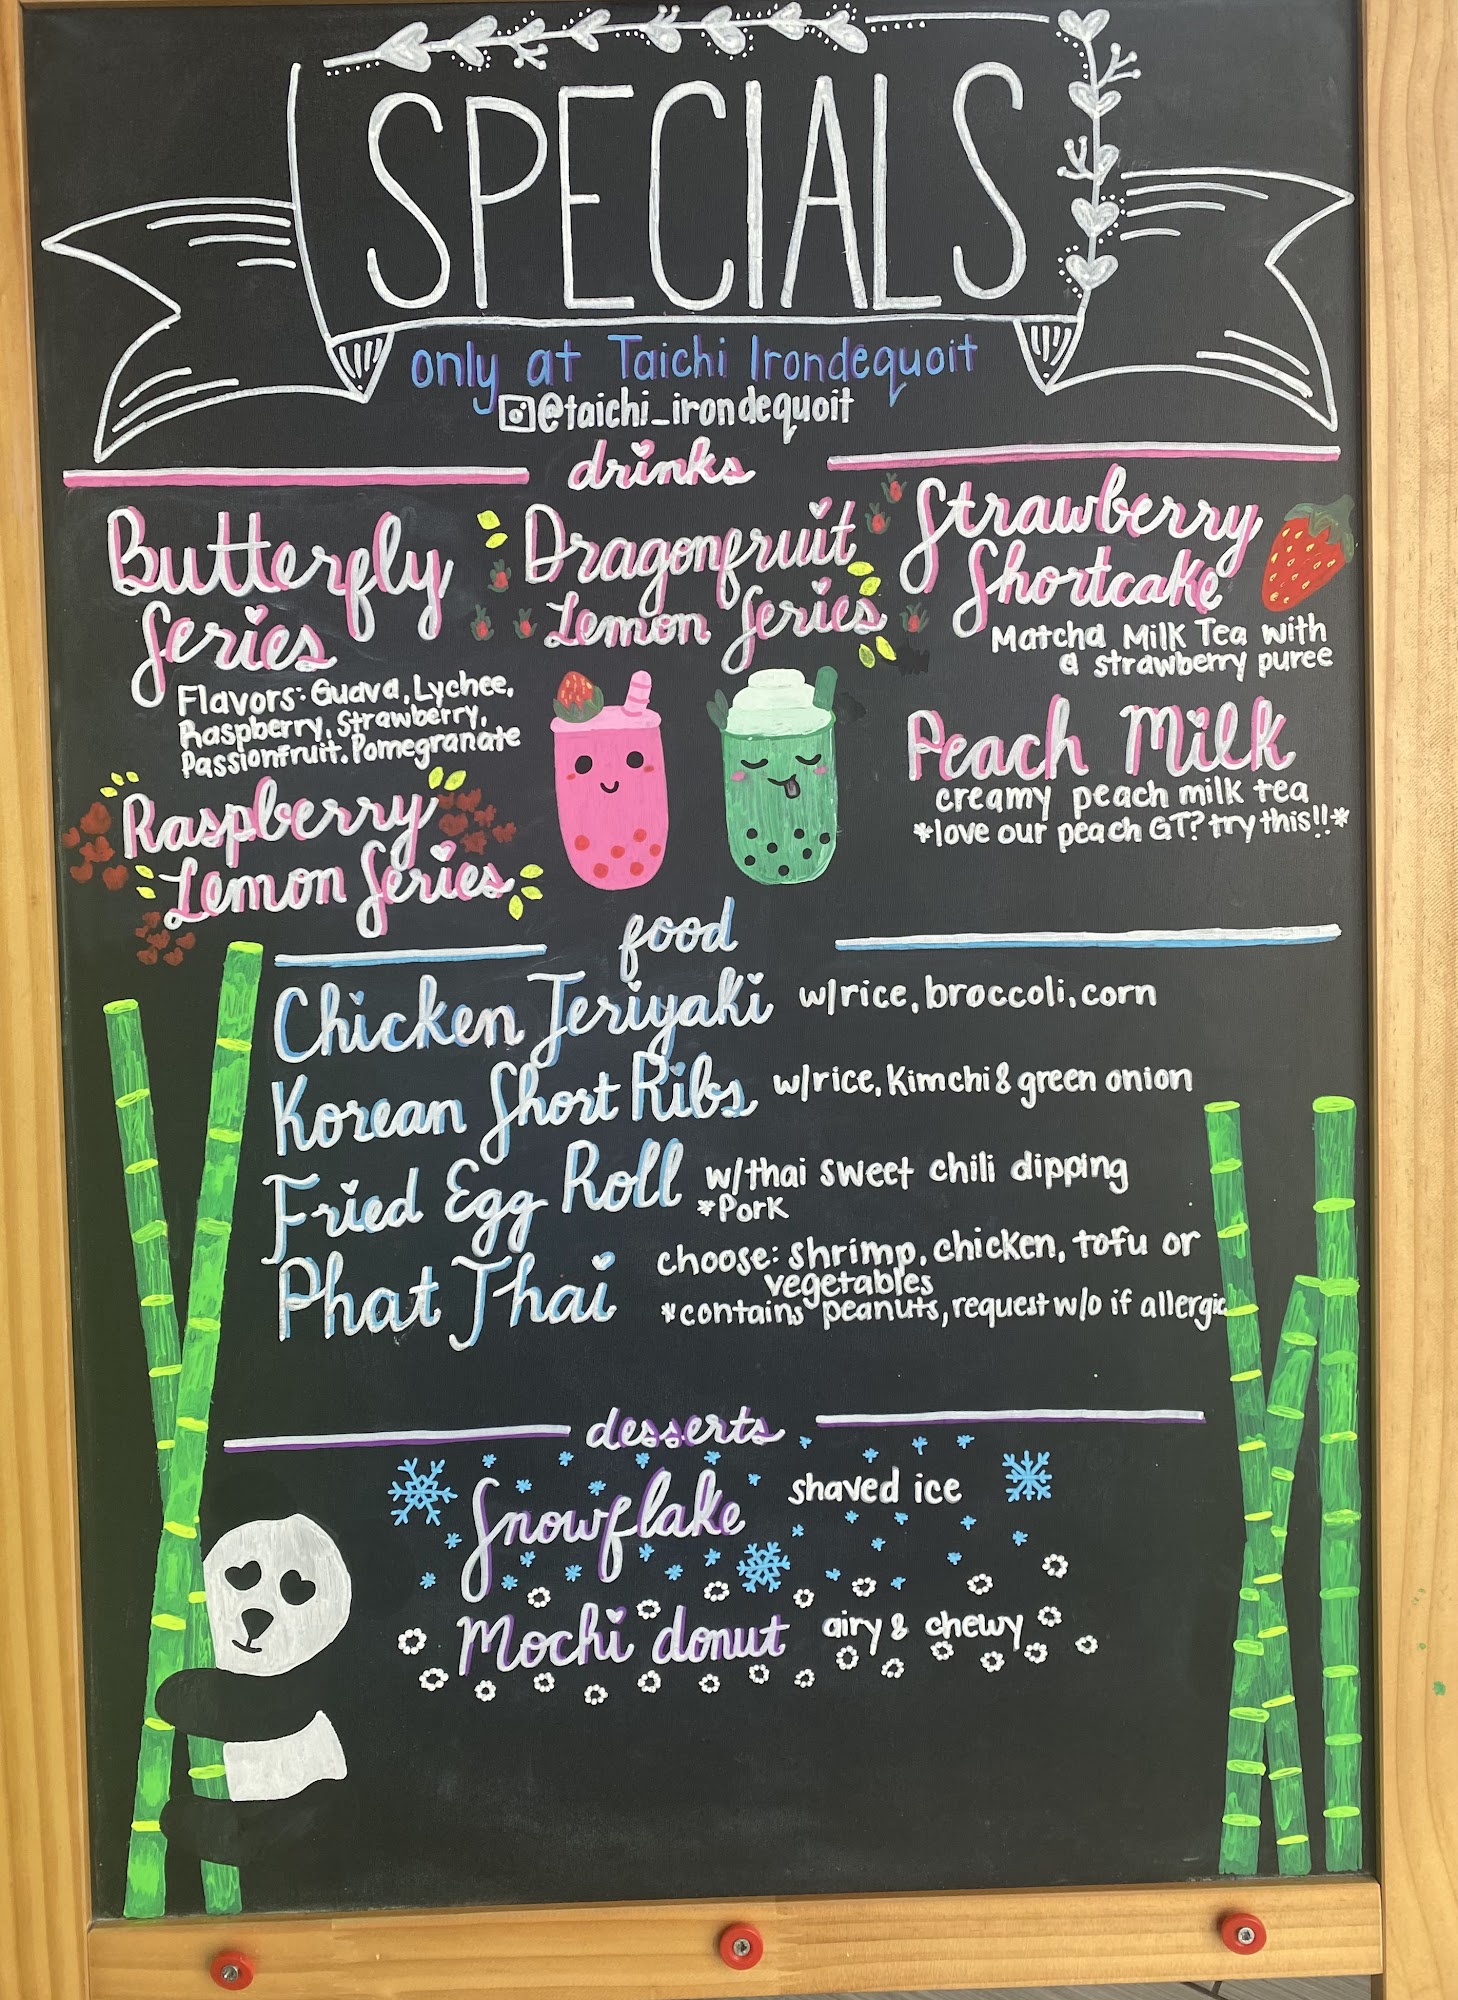 SPECIALS
only at Taichi Irondequoit
@taichi_irondequoit
drinks
Butterfly
Series
Flavors: Guava, Lychee,
Raspberry, Strawberry,
Passionfruit, Pomegranate
Raspberry
Lemon Series
Dragonfruit
Lemon Series
Strawberry
Shortcake
Matcha Milk Tea with
a strawberry puree
Peach Milk
creamy peach milk tea
*love our peach GT? try this!!*
food
Chicken Teriyaki w/rice, broccoli, corn
Korean Short Ribs w/rice, Kimchi & green onion
Fried Egg Roll w/thai sweet chili dipping
*Pork
Phat Thai choose: shrimp, chicken, tofu or
vegetables
*contains peanuts, request w/o if allergic
desserts
Snowflake shaved ice
Mochi donut airy & chewy